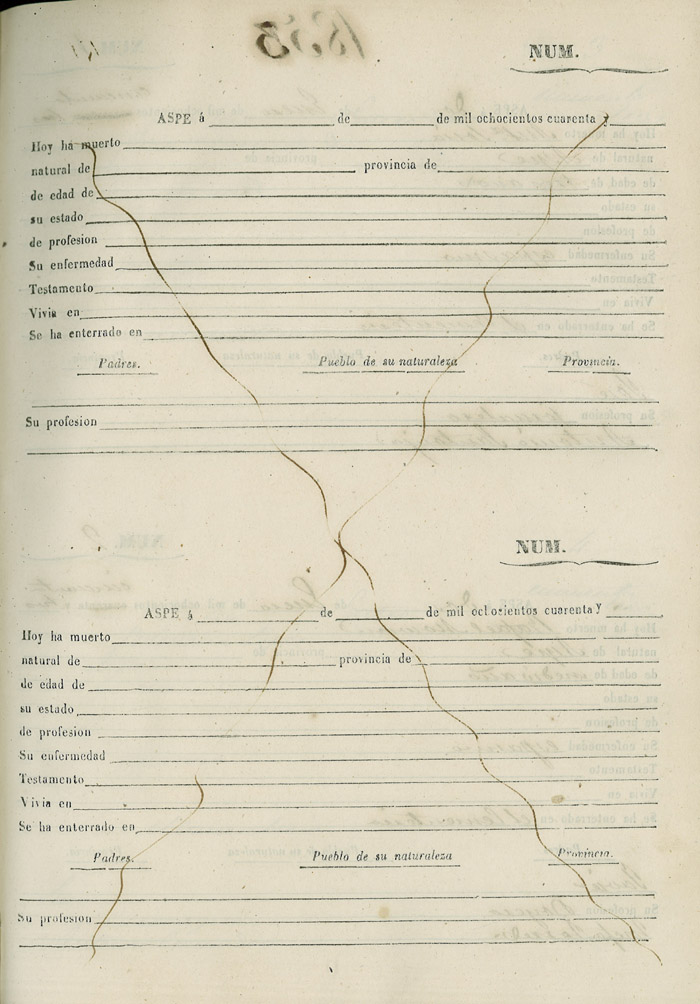 NUM.
ASPE á de de mil ochocientos cuarenta y
Hoy ha muerto
natural de provincia de
de edad de
su estado
de profesion
Su enfermedad
Testamento
Vivia en
Se ha enterrado en
Padres. Pueblo de su naturaleza Provincia.
Su profesion
NUM.
ASPE á de de mil ochocientos cuarenta y
Hoy ha muerto
natural de provincia de
de edad de
su estado
de profesion
Su enfermedad
Testamento
Vivia en
Se ha enterrado en
Padres. Pueblo de su naturaleza Provincia.
Su profesion